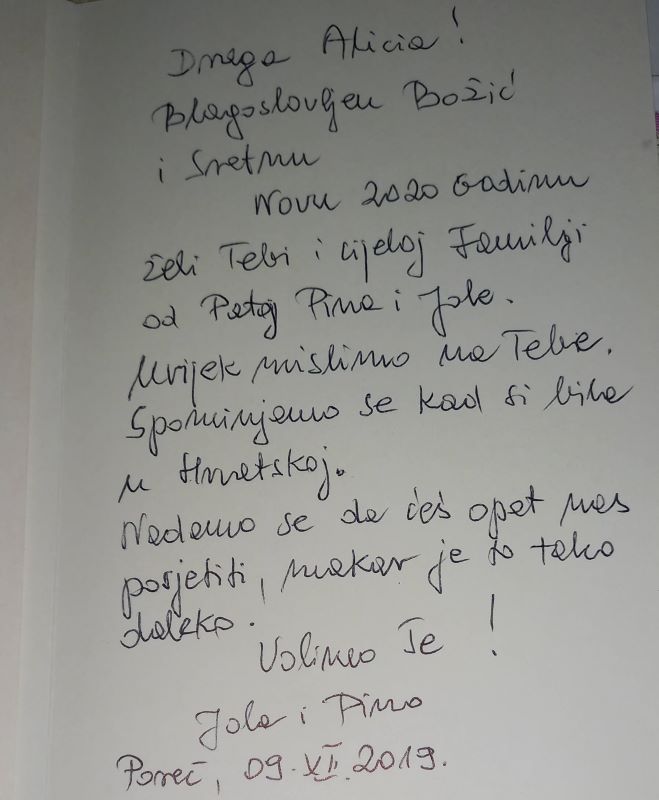 Draga Alicia!
Blagoslovljen Božić
i Sretnu
Novu 2020 Godinu
želi Tebi i cijeloj Familiji
od Pina i Jole.
Uvijek mislimo na Tebe.
Spominjemo se kad si bila
u Hrvatskoj.
Nadamo se da ćeš opet nas
posjetiti, makar je to tako
daleko.
Volimo Te !
Jola i Pino
Poreč, 09.XII.2019.